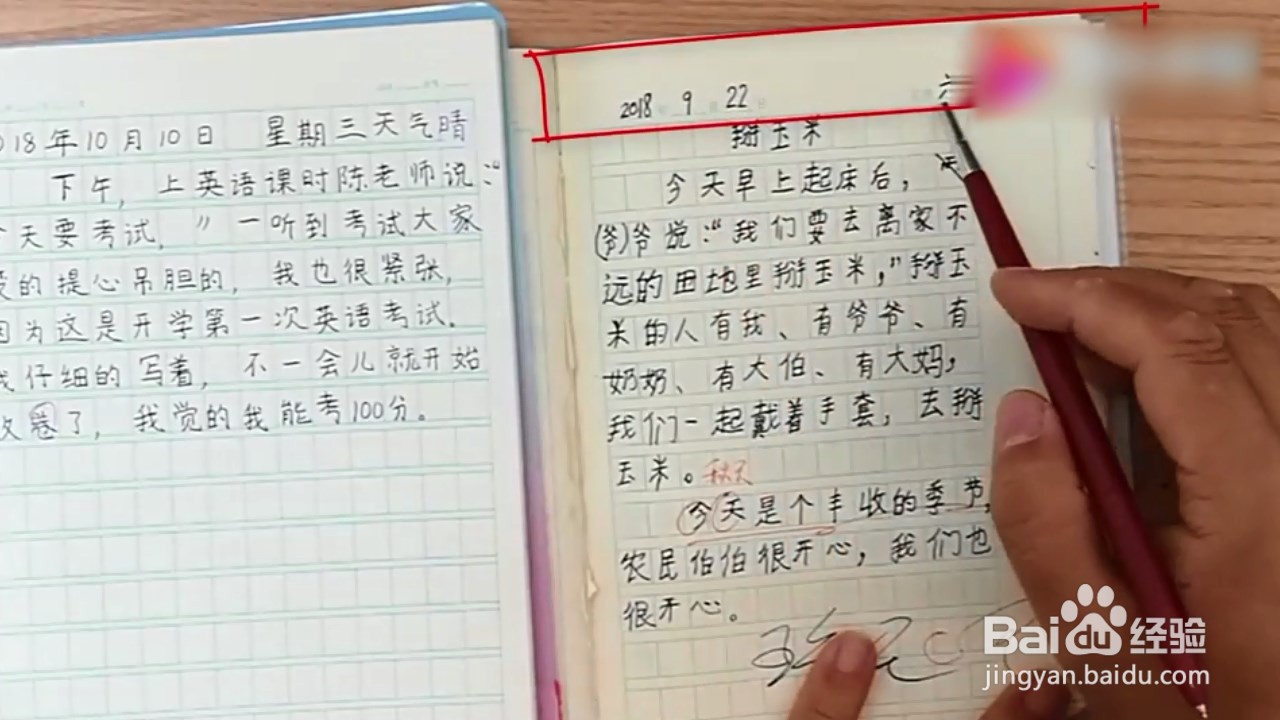 018年10月10日 星期三天气晴
下午，上英语课时陈老师说：“
天要考试，”一听到考试大家
的提心吊胆的，我也很紧张，
因为这是开学第一次英语考试．
我仔细的写着，不一会儿就开始
收卷了，我觉的我能考100分。
2018 9 22 六
掰玉米
今天早上起床后，
(爷)爷说：“我们要去离家不
远的田地里掰玉米，”掰玉
米的人有我、有爷爷、有
奶奶、有大伯、有大妈，
我们一起戴着手套，去掰
玉米。秋天
今天是个丰收的季节，
农民伯伯很开心，我们也
很开心。
Baidu经验
jingyan.baidu.com